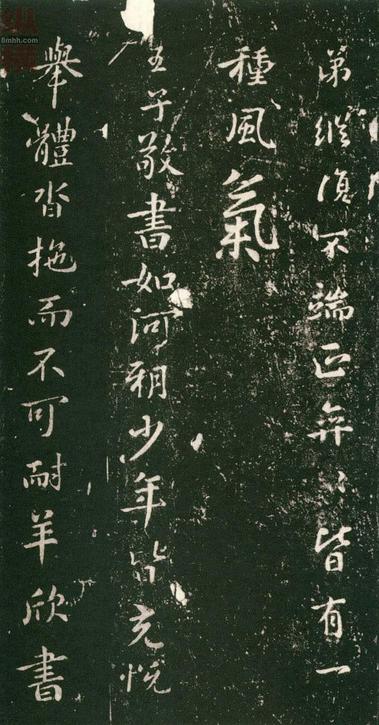 弟縱復不端正弈〻皆有一
種風氣
王子敬書如河朔少年皆充悅
舉體沓拖而不可耐羊欣書
8mhh.com